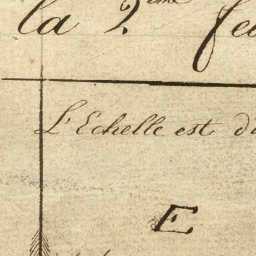 la 2.eme
L'Echelle est
E